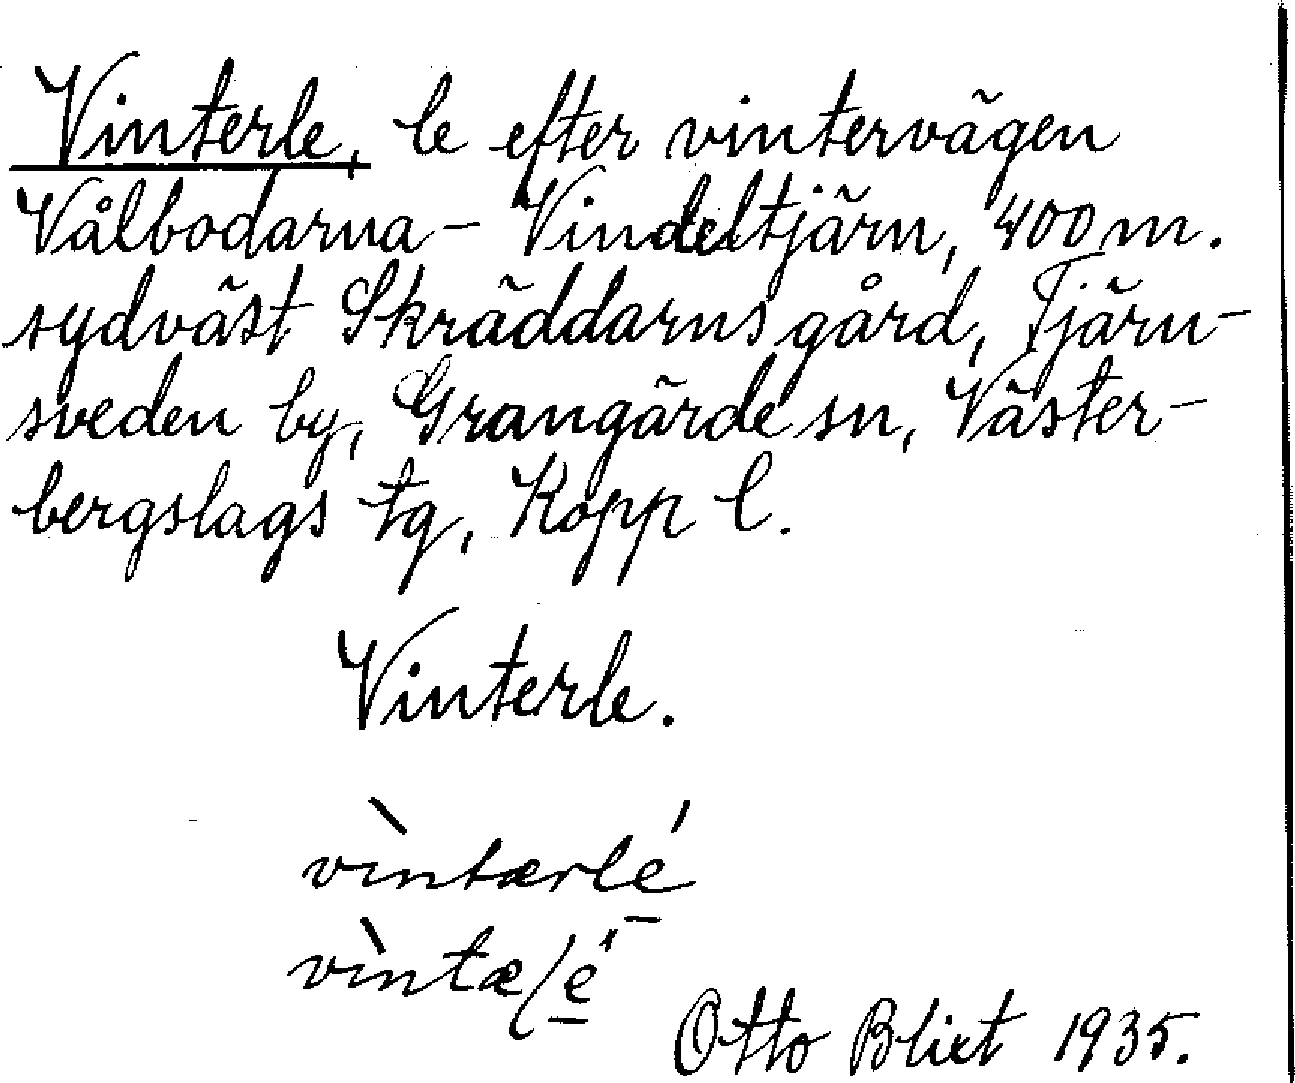 Vinterle, le efter vintervägen
Vålbodarna - Vindeltjärn, 400 m.
sydväst Skräddarns gård, Tjärn-
sveden by, Grangärde sn, Väster-
bergslags tg, Kopp l.
Vinterle.
vìntærlé
vìntæɭé
Otto Blixt 1935.